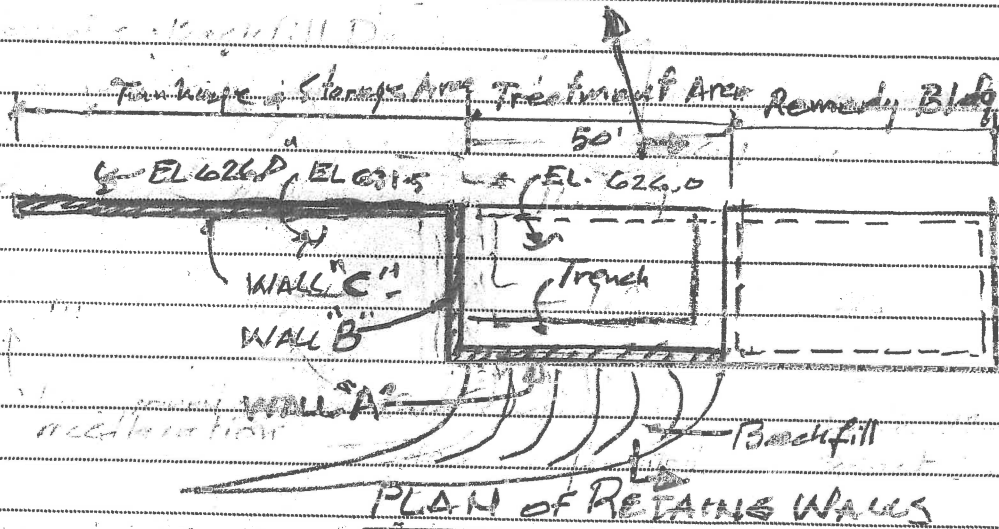 Backfill
Tankage & Storage Area Treatment Area Remedy Bldg
50'
EL 626.0 EL 631.5 EL. 626.0
WALL "C"
Trench
WALL "B"
WALL "A"
Backfill
PLAN of RETAING WALLS